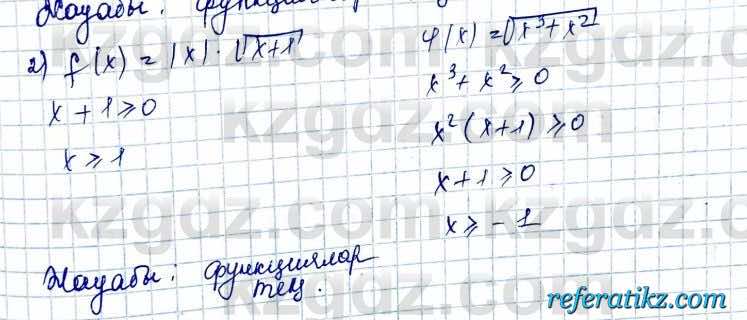 Жауабы: функциялар
2) f(x) = |x| · √(x+1)
x + 1 ≥ 0
x ≥ 1
φ(x) = √(x³ + x²)
x³ + x² ≥ 0
x² (x+1) ≥ 0
x + 1 ≥ 0
x ≥ - 1
Жауабы: функциялар
тең.
kzgdz.com
referatikz.com